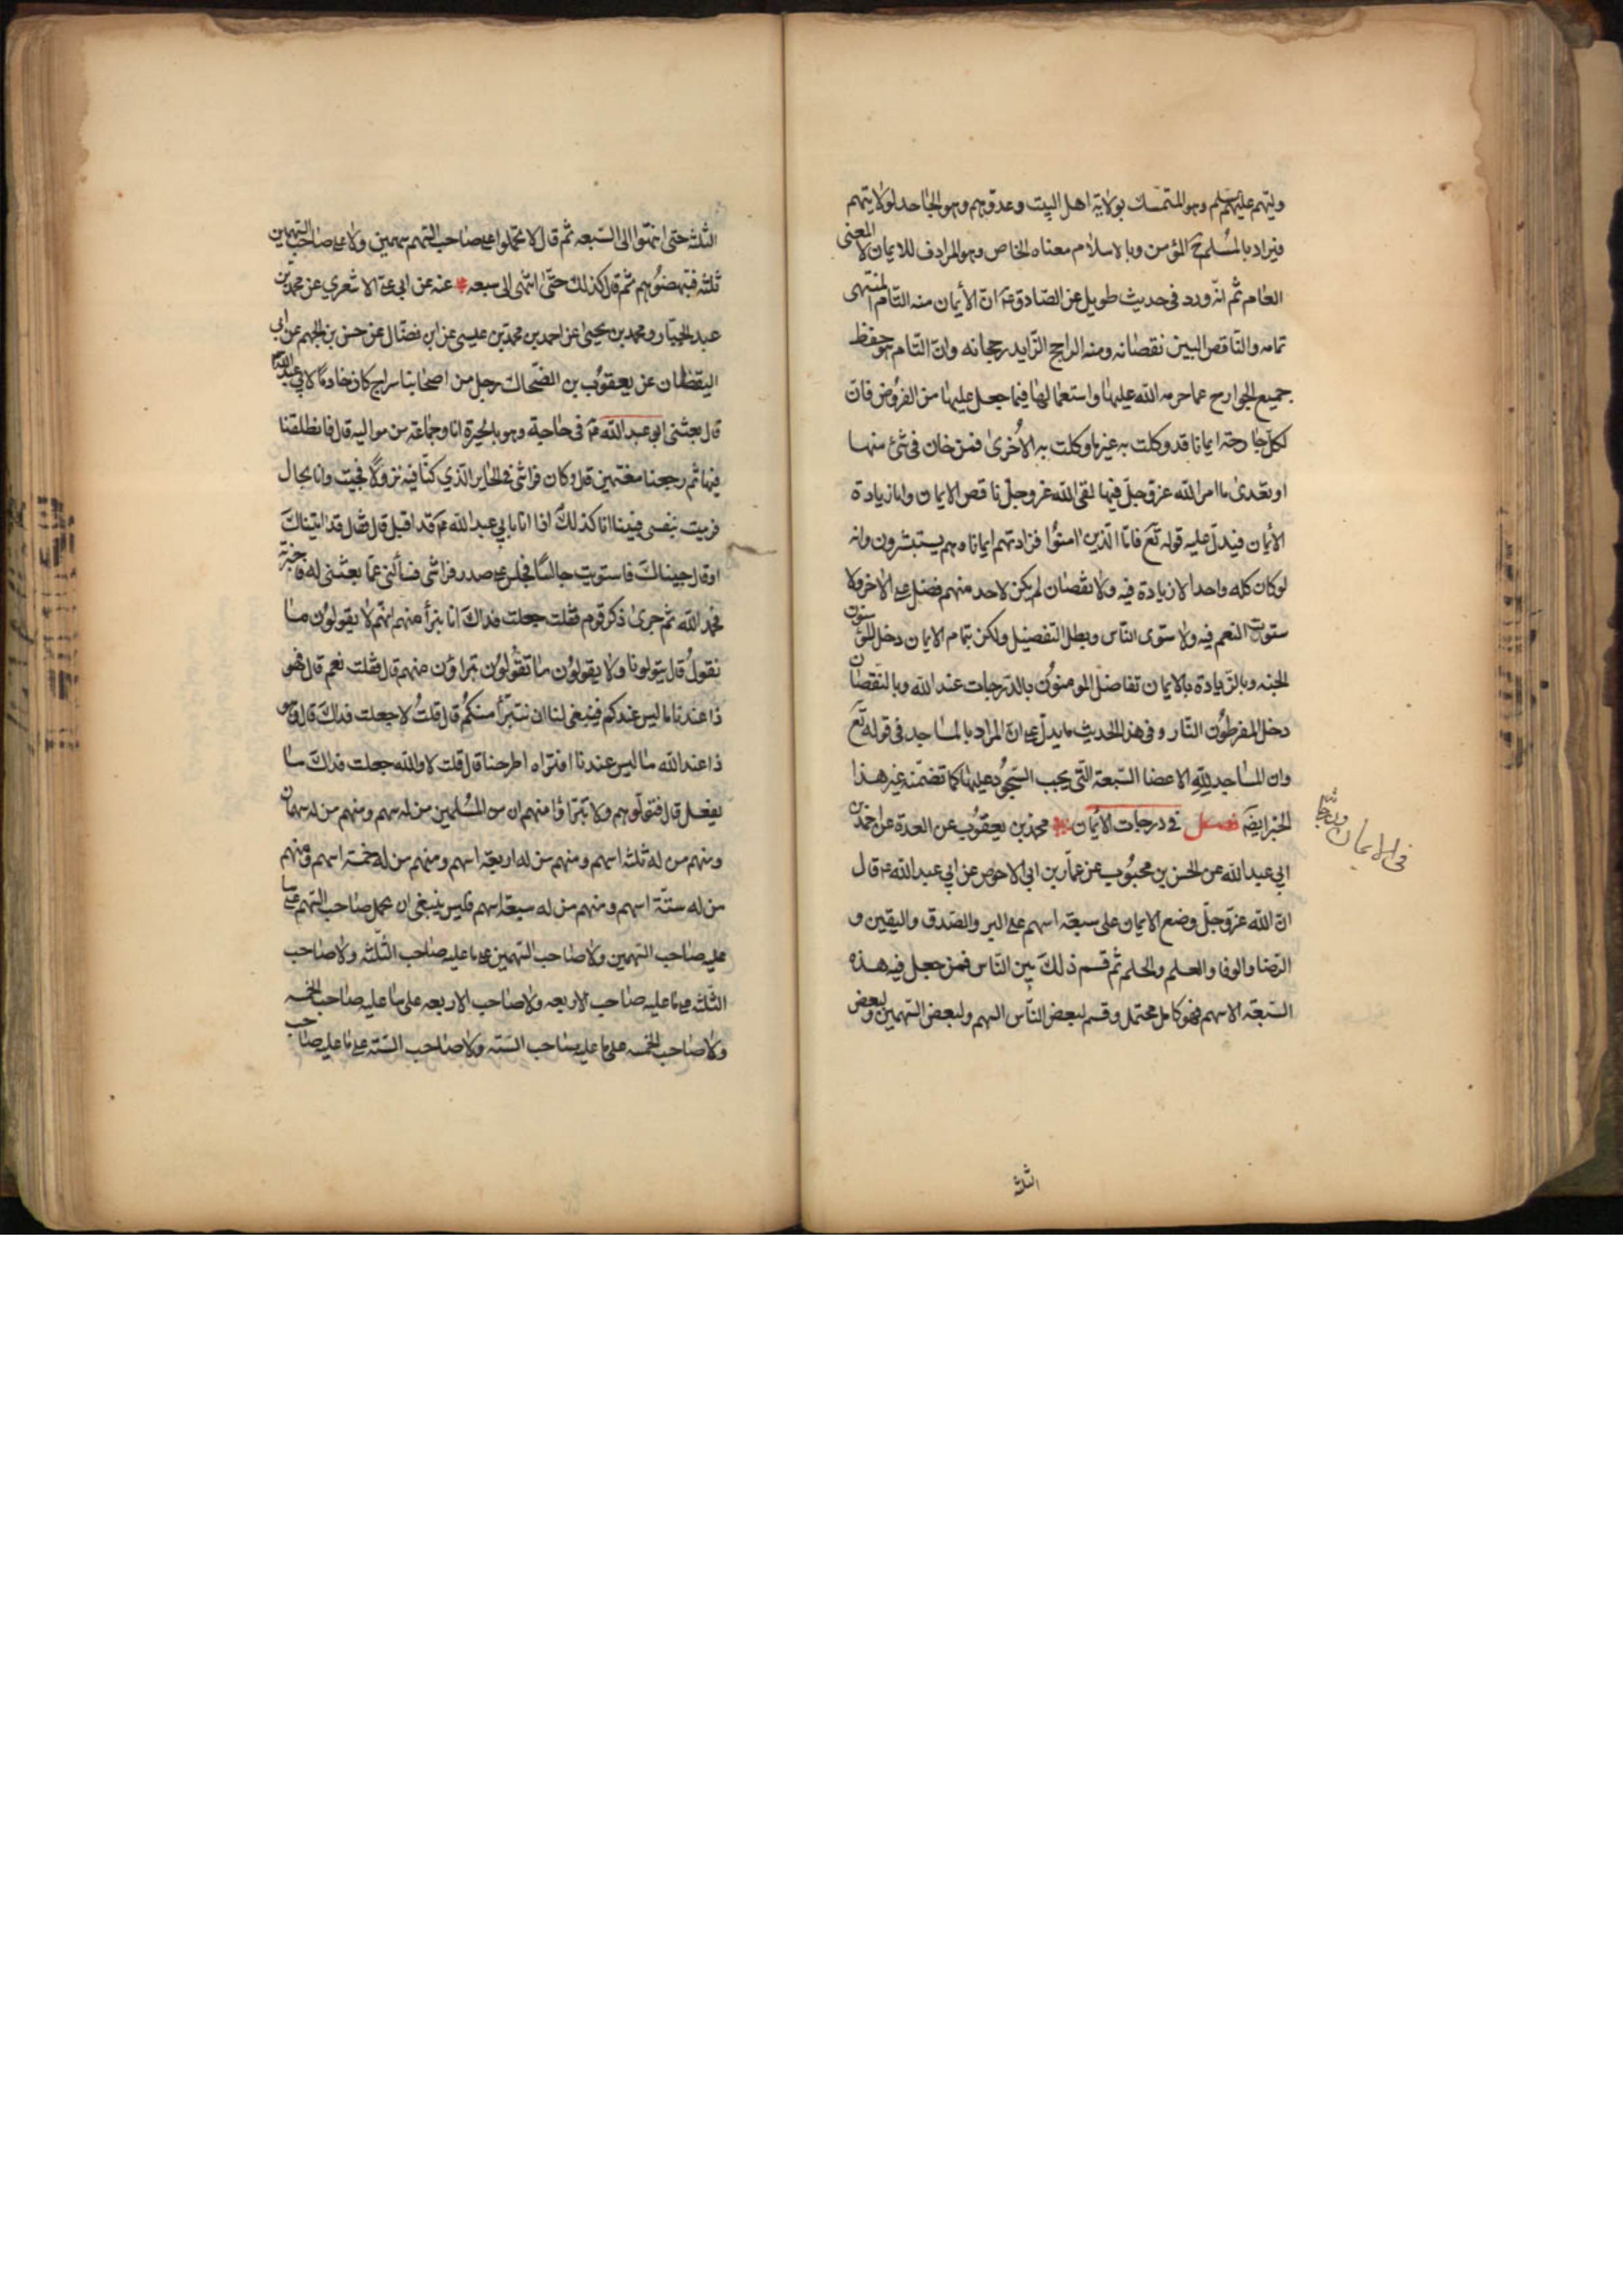 وليتهم عليهم سلم وهو المتمسك بولاية اهل البيت وعدوهم وهو الجاحد لولايتهم
فيراد بالمسلم ح المؤمن وبالاسلام معناه الخاص وهو المرادف للايمان لا المعنى
العام ثم انه ورد فى حديث طويل عن الصادق ع ان الأيمان منه التام المنتهى
تمامه والناقص البين نقصانه ومنه الراجح الزايد رجحانه وان التام هو حفظ
جميع الجوارح عما حرمه الله عليها واستعمالها فيما جعل عليها من الفروض فان
لكل جارحة ايمانا قد وكلت به غير ما وكلت به الأخرى فمن خان فى شئ منها
او تعدى ما امر الله عز وجل فيها لقى الله عز وجل ناقص الايمان واما زيادة
الأيمان فيدل عليه قوله تع فاما الذين امنوا فزادتهم ايمانا وهم يستبشرون وانه
لو كان كله واحدا لا زيادة فيه ولا نقصان لم يكن لاحد منهم فضل على الاخر ولا
ستوت النعم فيه ولا ستوى الناس وبطل التفضيل ولكن بتمام الايمان دخل المؤمنون
الجنه وبالزيادة بالايمان تفاضل المومنون بالدرجات عند الله وبالنقصان
دخل المفرطون النار وفى هذا الحديث ما يدل على ان المراد بالمساجد فى قوله تع
وان المساجد لله الاعضا السبعة التى يجب السجود عليها كما تضمنه غير هذا
الخبر ايضا فصل فى درجات الايمان محمد بن يعقوب عن العدة عن احمد بن
ابي عبد الله عن الحسن بن محبوب عن عمار بن ابى الاحوص عن ابي عبد الله ع قال
ان الله عز وجل وضع الايمان على سبعة اسهم على البر والصدق واليقين و
الرضا والوفا والعلم والحلم ثم قسم ذلك بين الناس فمن جعل فيه هذه
السبعة الاسهم فهو كامل محتمل وقسم لبعض الناس السهم ولبعض السهمين ولبعض
الثلثه
فى الايمان ودرجاته
الثلثه حتى انتهوا الى السبعه ثم قال لا تحملوا على صاحب السهم سهمين ولا على صاحب السهمين
ثلثه فتبهضوهم ثم قال كذلك حتى انتهى الى سبعه عنه عن ابي على الاشعري عن محمد بن
عبد الجبار ومحمد بن يحيى عن احمد بن محمد بن عيسى عن ابن فضال عن حسن بن الجهم عن ابي
اليقظان عن يعقوب بن الضحاك رجل من اصحابنا سراج كان خادما لابي عبد الله
قال بعثنى ابو عبد الله ع فى حاجة وهو بالحيرة انا وجماعة من مواليه قال فانطلقنا
فيها ثم رجعنا مغتمين قال وكان فراشى فى الحاير الذي كنا فيه نزولا فجيت وانا بحال
فرميت بنفسى فبينا انا كذلك اذا انا بابي عبد الله ع قد اقبل قال فقال قد اتيناك
او قال جيناك فاستويت جالسا فجلس على صدر فراشى فسألنى عما بعثنى له فاخبرته
فحمد الله ثم جرى ذكر قوم فقلت جعلت فداك انا نبرأ منهم انهم لا يقولون ما
نقول قال يتولونا ولا يقولون ما تقولون تبراؤن منهم قال فقلت نعم قال فهو
ذا عندنا ما ليس عندكم فينبغى لنا ان نتبرأ منكم قال قلت لا جعلت فداك قال وهو
ذا عند الله ما ليس عندنا افتراه اطرحنا قال قلت لا والله جعلت فداك ما
يفعل قال فتولوهم ولا تبتراؤا منهم ان من المسلمين من له سهم ومنهم من له سهمان
ومنهم من له ثلثه اسهم ومنهم من له اربعة اسهم ومنهم من له خمسة اسهم ومنهم
من له ستة اسهم ومنهم من له سبعة اسهم فليس ينبغى ان يحمل صاحب السهم على ما
عليه صاحب السهمين ولا صاحب السهمين على ما عليه صاحب الثلثه ولا صاحب
الثلثه على ما عليه صاحب الاربعه ولا صاحب الاربعه على ما عليه صاحب الخمسه
ولا صاحب الخمسه على ما عليه صاحب السته ولا صاحب السته على ما عليه صاحب